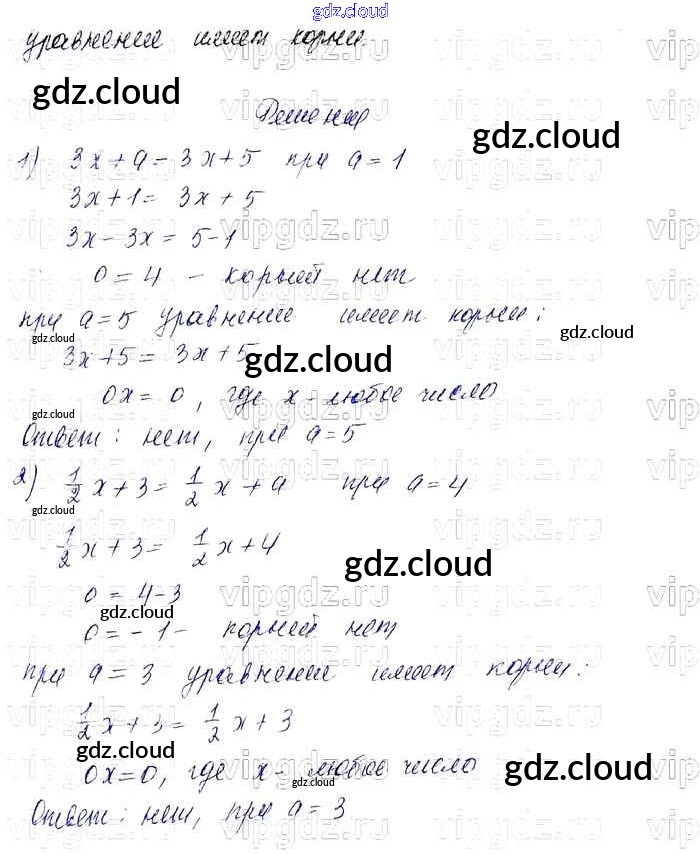 gdz.cloud
уравнение имеет корни.
gdz.cloud
Решение
gdz.cloud
1) 3x + a = 3x + 5 при a = 1
3x + 1 = 3x + 5
3x - 3x = 5 - 1
0 = 4 - корней нет
при a = 5 уравнение имеет корни:
gdz.cloud
gdz.cloud
3x + 5 = 3x + 5
gdz.cloud
0x = 0, где x - любое число
gdz.cloud
Ответ: нет, при a = 5
2) 1/2 x + 3 = 1/2 x + a при a = 4
gdz.cloud
1/2 x + 3 = 1/2 x + 4
gdz.cloud
0 = 4 - 3
gdz.cloud
0 = - 1 - корней нет
при a = 3 уравнение имеет корни:
1/2 x + 3 = 1/2 x + 3
gdz.cloud
0x = 0, где x - любое число
gdz.cloud
gdz.cloud
Ответ: нет, при a = 3
vipgdz.ru